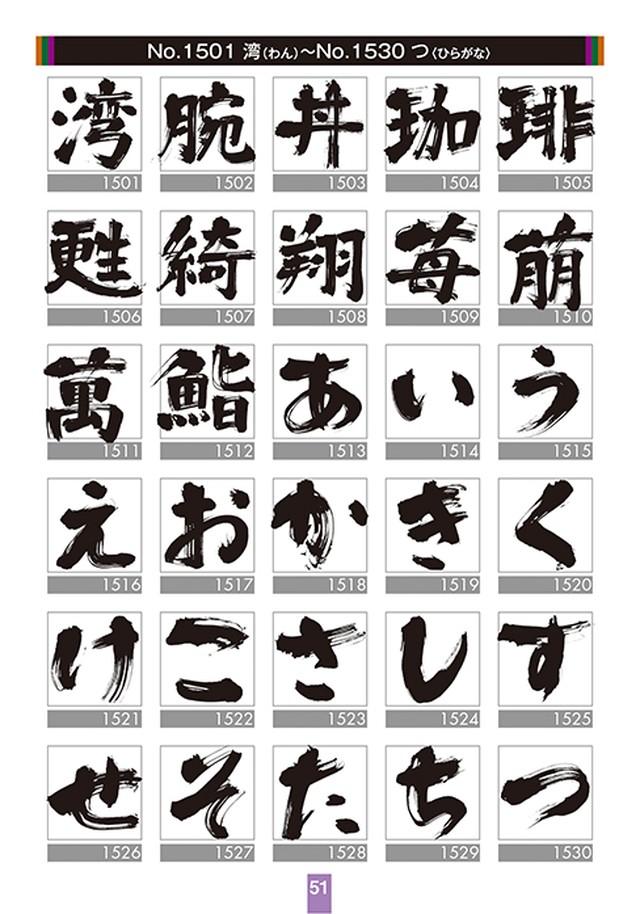 No.1501 湾(わん)～No.1530 つ〈ひらがな〉
湾 腕 丼 珈 琲
1501 1502 1503 1504 1505
甦 綺 翔 苺 萠
1506 1507 1508 1509 1510
萬 鮨 あ い う
1511 1512 1513 1514 1515
え お か き く
1516 1517 1518 1519 1520
け こ さ し す
1521 1522 1523 1524 1525
せ そ た ち つ
1526 1527 1528 1529 1530
51